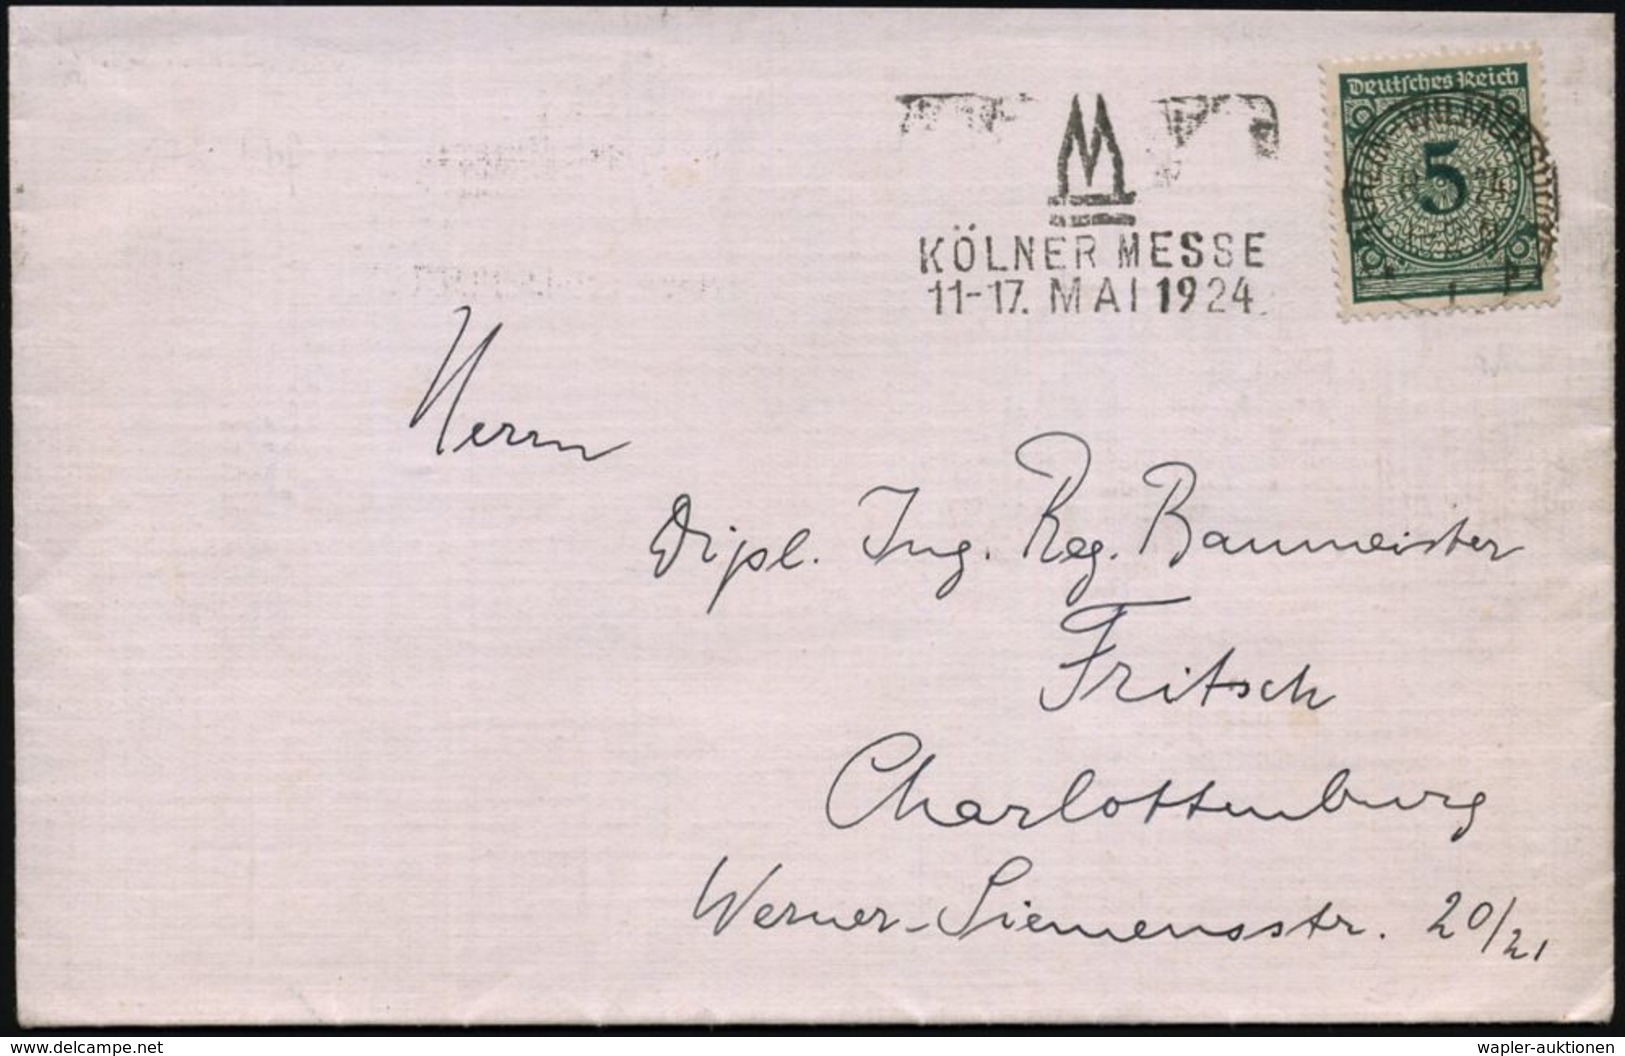 KÖLNER MESSE
11-17. MAI 1924.
Deutsches Reich
5
BERLIN-WILMERSDORF
Herrn
Dipl. Ing. Reg. Baumeister
Fritsch
Charlottenburg
Werner-Siemensstr. 20/21
www.delcampe.net
wapler-auktionen